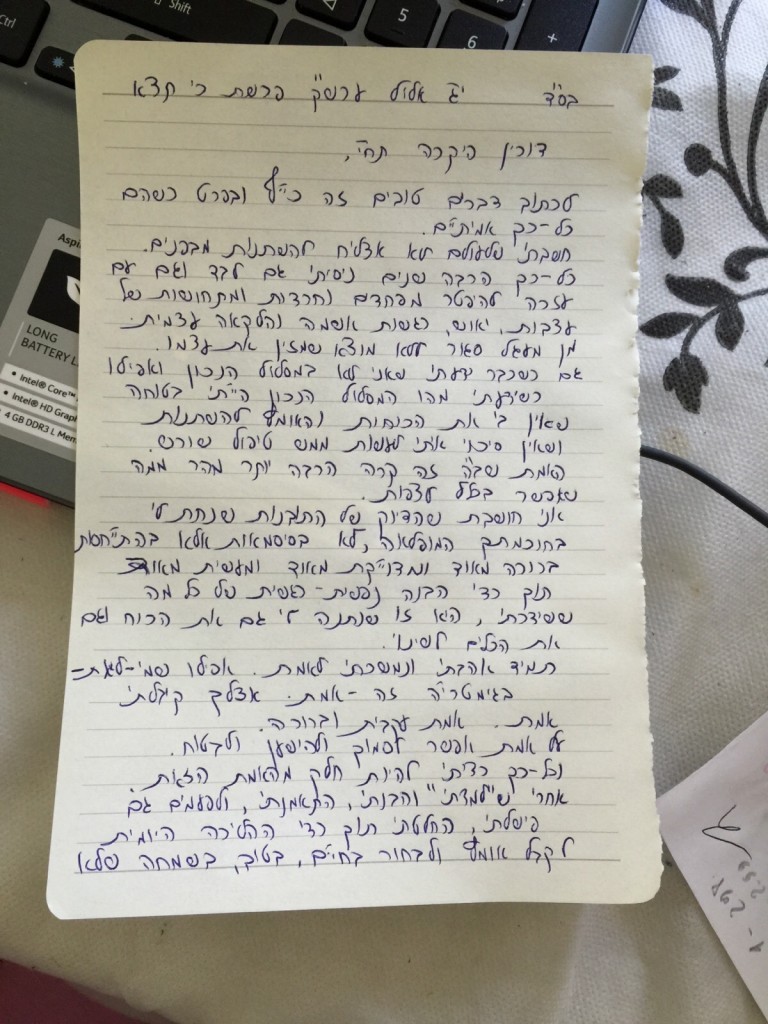 Shift
5
6
+
Aspi
LONG
BATTERY L
• Intel® Core™
• Intel® HD Graph
• 4 GB DDR3 L Mem
בס"ד י"ג אלול ערש"ק פרשת כי תצא
דורין היקרה תחי',
לכתוב דברים טובים זה כייף ובפרט כשהם
כל-כך אמיתיים.
חשבתי שלעולם לא אצליח להשתנות מבפנים.
כל-כך הרבה שנים ניסיתי גם לבד וגם עם
עזרה להיפטר מפחדים וחרדות ומתחושות של
עצבות, יאוש, רגשות אשמה והלקאה עצמית.
מן מעגל סגור ללא מוצא שמזין את עצמו.
גם כשכבר ידעתי שאני לא במסלול הנכון ואפילו
כשידעתי מהו המסלול הנכון הייתי בטוחה
שאין בי את הכוחות והאומץ להשתנות
ושאין סיכוי אתי לעשות ממש טיפול שורש.
האמת שב"ה זה קרה הרבה יותר מהר ממה
שאפשר בכלל לצפות.
אני חושבת שהדיוק של התובנות שנתת לי
בחוכמתך המופלאה, לא בסיסמאות אלא בהתייחסות
ברורה מאוד ומדוייקת מאוד ומעשית מאוד
תוך כדי הבנה נפשית-רגשית של כל מה
ששידרתי, היא זו שנתנה לי גם את הכוח וגם
את הכלים לשינוי.
תמיד אהבתי ונמשכתי לאמת. אפילו שמי-לאת-
בגימטריה זה -אמת. אצלך קיבלתי
אמת. אמת עקבית וברורה.
על אמת אפשר לסמוך ולהישען ולבטוח.
וכל-כך רציתי להיות חלק מהאמת הזאת.
אחרי ש"למדתי" והבנתי, התאמנתי, ולפעמים גם
פישלתי, החלטתי תוך כדי ההליכה היומית
לקבל אומץ ולבחור בחיים, בטוב, בשמחה שלא